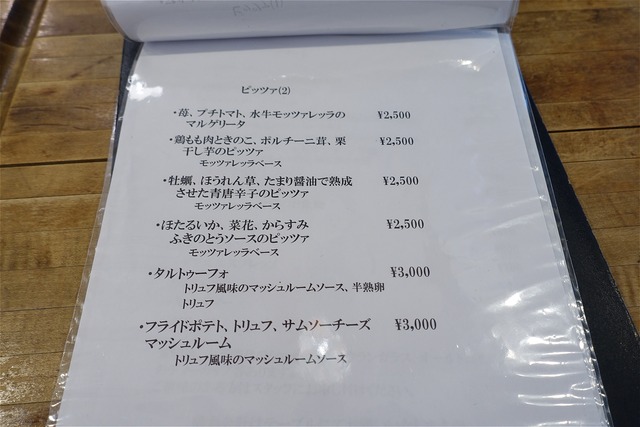 ピッツァ(2)
・苺、プチトマト、水牛モッツァレッラの ¥2,500
マルゲリータ
・鶏もも肉ときのこ、ポルチーニ茸、栗 ¥2,500
干し芋のピッツァ
モッツァレッラベース
・牡蠣、ほうれん草、たまり醤油で熟成 ¥2,500
させた青唐辛子のピッツァ
モッツァレッラベース
・ほたるいか、菜花、からすみ ¥2,500
ふきのとうソースのピッツァ
モッツァレッラベース
・タルトゥーフォ ¥3,000
トリュフ風味のマッシュルームソース、半熟卵
トリュフ
・フライドポテト、トリュフ、サムソーチーズ ¥3,000
マッシュルーム
トリュフ風味のマッシュルームソース